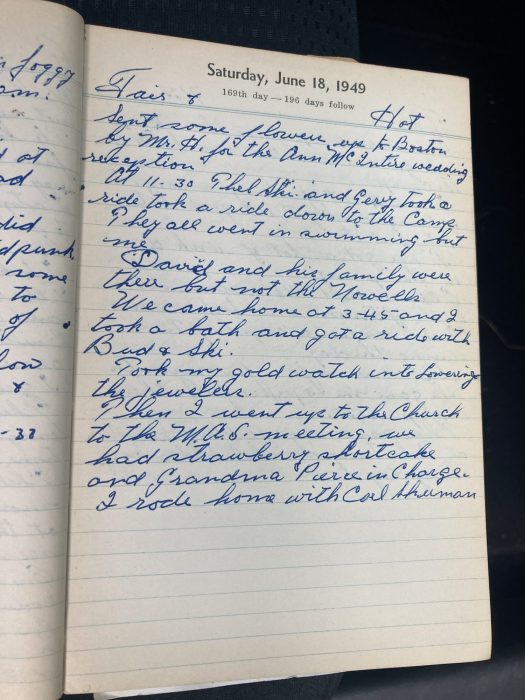 foggy
am.
at
ad
did
dpunk
some
to
of
low
&
-30
Saturday, June 18, 1949
169th day — 196 days follow
Fair & Hot
Sent some flowers up to Boston
by Mr. H. for the Ann McIntire wedding
reception
At 11-30 Phel Ski and Gerry took a
ride took a ride down to the Camp
They all went in swimming but
me
David and his family were
there but not the Nowells
We came home at 3-45 and I
took a bath and got a ride with
Bud & Ski.
Took my gold watch into Lowerings
the jewelers.
Then I went up to the Church
to the M.A.S. meeting, we
had strawberry shortcake
and Grandma Pierce in Charge.
I rode home with Carl Shuman